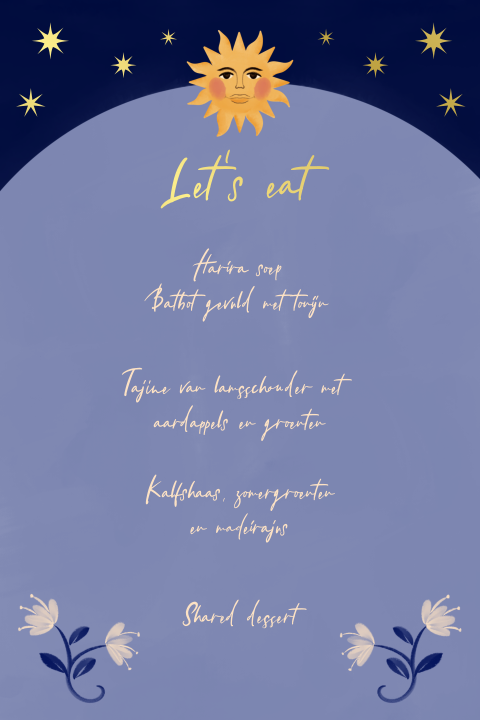 Let's eat
Harira soep
Batbot gevuld met tonijn
Tajine van lamsschouder met
aardappels en groenten
Kalfshaas, zomergroenten
en madeirajus
Shared dessert